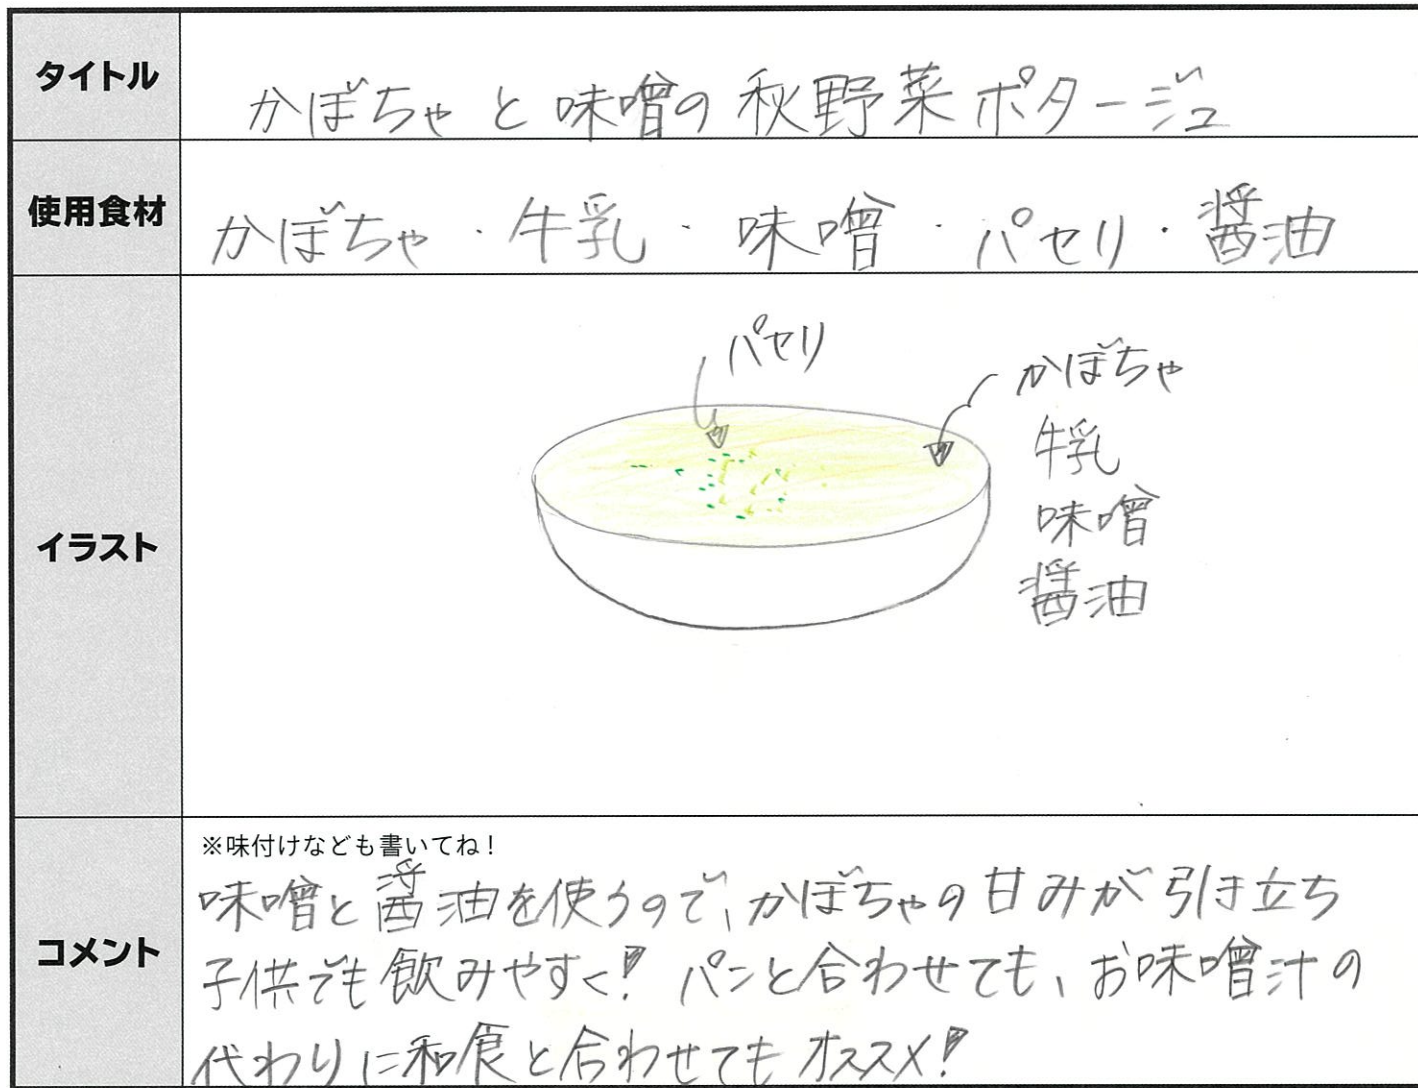 タイトル
かぼちゃと味噌の秋野菜ポタージュ
使用食材
かぼちゃ・牛乳・味噌・パセリ・醤油
イラスト
パセリ
かぼちゃ
牛乳
味噌
醤油
コメント
※味付けなども書いてね!
味噌と醤油を使うので、かぼちゃの甘みが引き立ち
子供でも飲みやすく!パンと合わせても、お味噌汁の
代わりに和食と合わせてもオススメ!